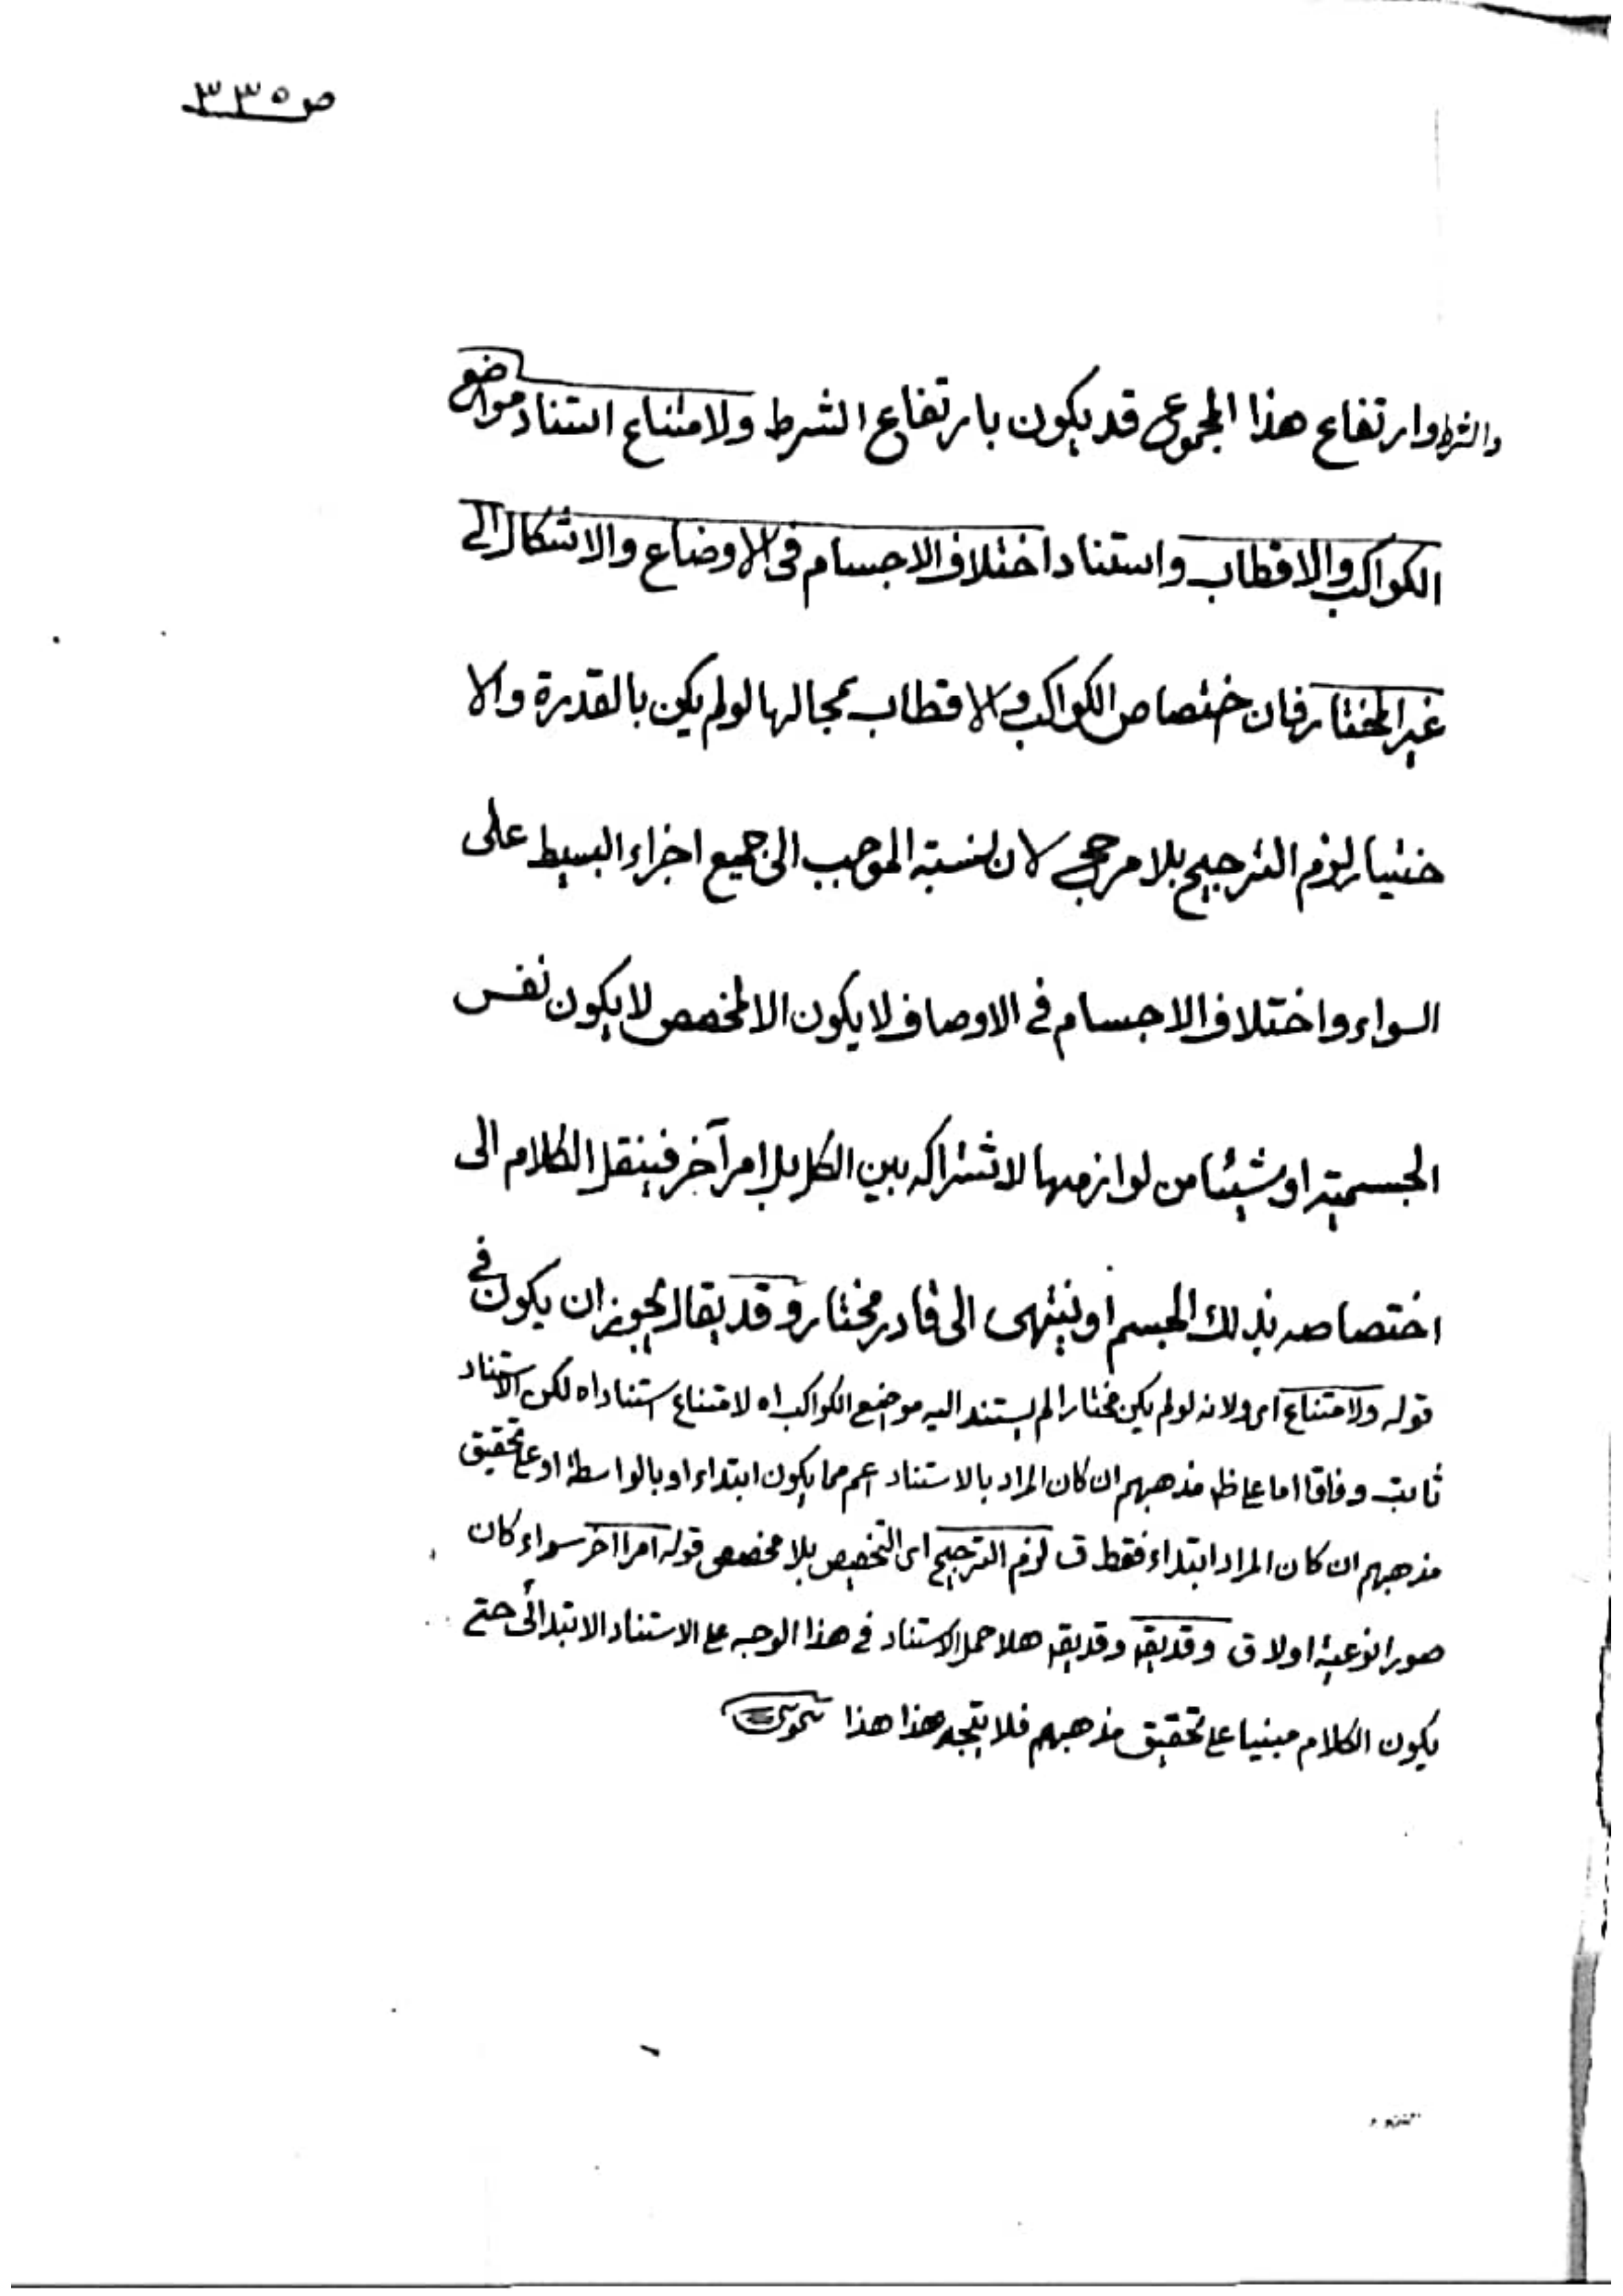 ص ٣٣٥
والشرط وارتفاع هذا المجموع قد يكون بارتفاع الشرط ولامتناع استناد مواضع
الكواكب والاقطاب واستناد اختلاف الاجسام في الاوضاع والاشكال الى
غير المختار فان ختصاص الكواكب والاقطاب بمحالها لو لم يكن بالقدرة والا
ختيار لزم الترجيح بلا مرجح لان نسبة الموجب الى جميع اجزاء البسيط على
السواء واختلاف الاجسام في الاوصاف لا يكون الا لمخصص لا يكون نفس
الجسمية او شيئا من لوازمها لاشتراكه بين الكل بل امر آخر فينقل الكلام الى
اختصاصه بذلك الجسم او ينتهى الى قادر مختار وقد يقال يجوز ان يكون في
قوله ولامتناع اى ولانه لو لم يكن مختارا لم يستند اليه موضع الكواكب اه لامتناع استناد اه لكن الاستناد
ثابت وفاقا اما ع ظ مذهبهم ان كان المراد بالاستناد اعم مما يكون ابتداء او بالواسطة او ع تحقيق
مذهبهم ان كان المراد ابتداء فقط ق لزم الترجيح اى التخصيص بلا مخصص قوله امرا آخر سواء كان
صورا نوعية او لا ق وقد يق وقد يق هلا حمل الاستناد في هذا الوجه ع الاستناد الابتدائى حتى
يكون الكلام مبنيا ع تحقيق مذهبهم فلا يتجه هذا هذا